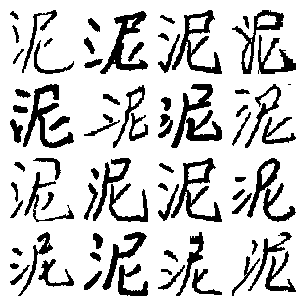 泥泥泥泥
泥泥泥泥
泥泥泥泥
泥泥泥泥